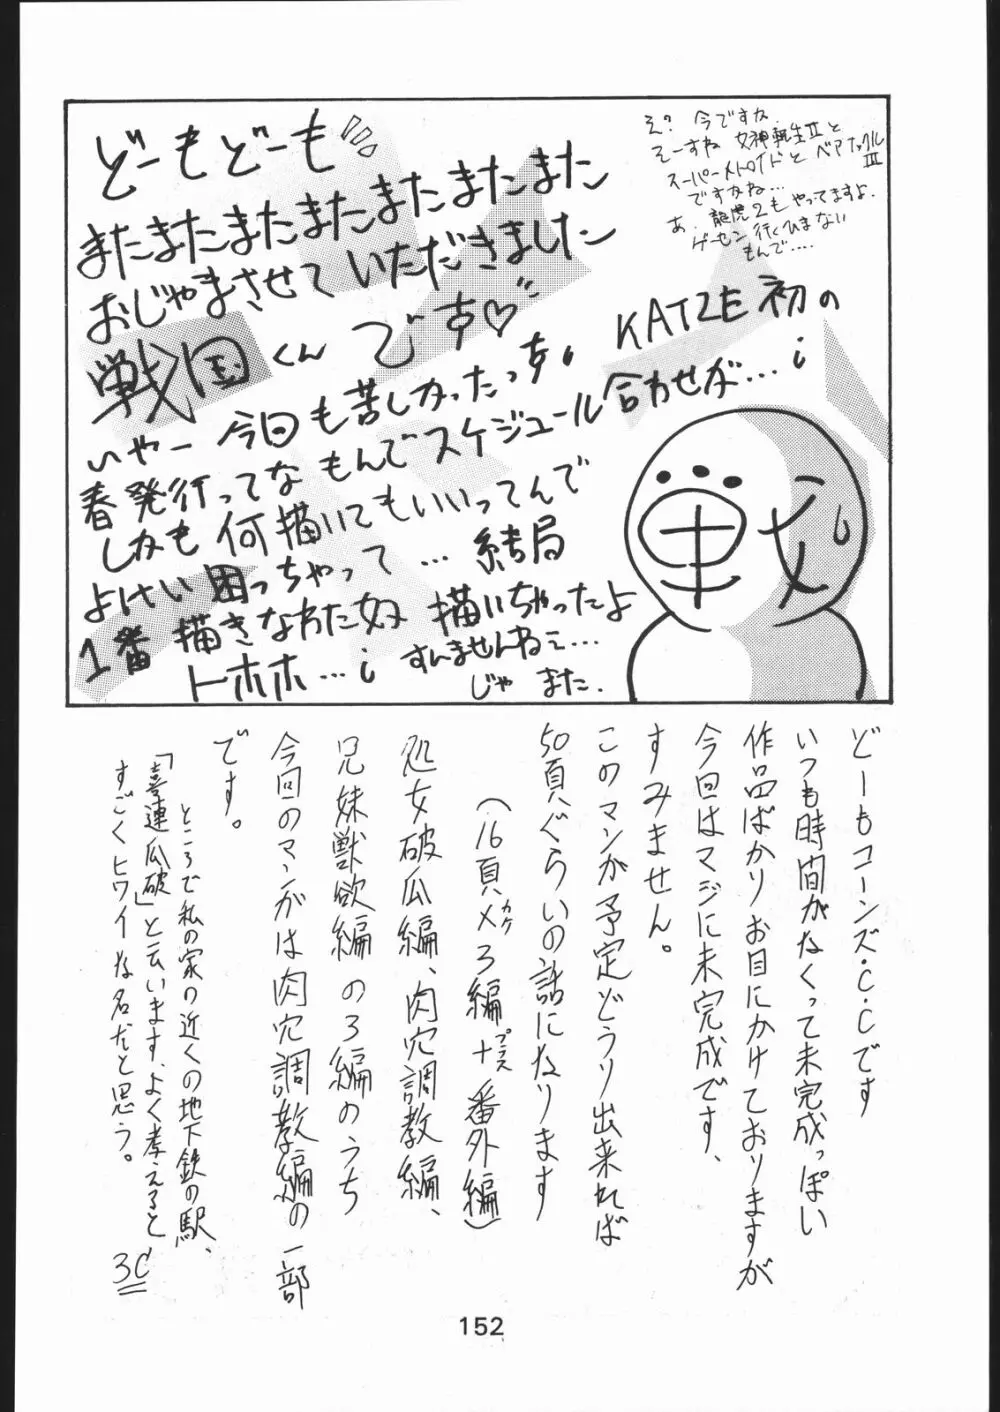 どーもどーも
またまたまたまたまたまたまた
おじゃまさせていただきました
戦国くんです♡
いやー今回も苦しかったっす。KATZE初の
春発行ってなもんでスケジュール合わせが…
しかも何描いてもいいってんで
よけい困っちゃって…結局
1番描きなれた奴描いちゃったよ
トホホ…
すんませんねェ…
じゃ また.
え?今ですか
そーすね 女神転生IIと
スーパーメトロイドとベアナックル
III
ですかね…
あ、龍虎2もやってますよ.
ゲーセン行くひまない
もんで….
どーもコーンズ・C・Cです
いつも時間がなくって未完成っぽい
作品ばかりお目にかけておりますが
今回はマジに未完成です、
すみません。
このマンガ予定どうり出来れば
50頁ぐらいの話になります
(16頁×カケ3編+プラス番外編)
処女破瓜編、肉穴調教編、
兄妹獣欲編の3編のうち
今回のマンガは肉穴調教編の一部
です。
ところで私の家の近くの地下鉄の駅、
「喜連瓜破」と云います、よく考えると、
すごくヒワイな名だと思う。
3C
152